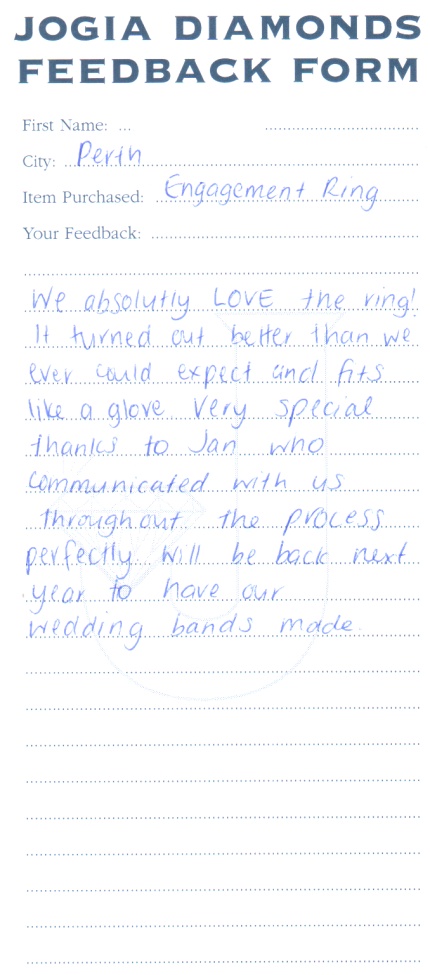 JOGIA DIAMONDS
FEEDBACK FORM
First Name: ...
City: Perth
Item Purchased: Engagement Ring
Your Feedback:
We absolutly LOVE the ring!
It turned out better than we
ever could expect and fits
like a glove. Very special
thanks to Jan who
communicated with us
throughout the process
perfectly. Will be back next
year to have our
wedding bands made.